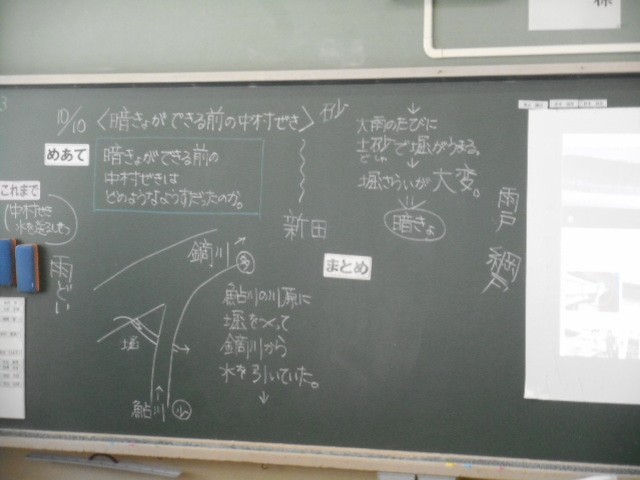 10/10 〈暗きょができる前の中村ぜき〉
めあて
暗きょができる前の
中村ぜきは
どのようなようすだったのか。
これまで
中村ぜき
雨どい
鏑川
多
堀
鮎川
小
砂
新田
鮎川の川原に
堀をつくって
鏑川から
水を引いていた。
大雨のたびに
土砂で堀がうまる。
どしゃ
堀さらいが大変。
暗きょ
まとめ
雨戸
網戸
様